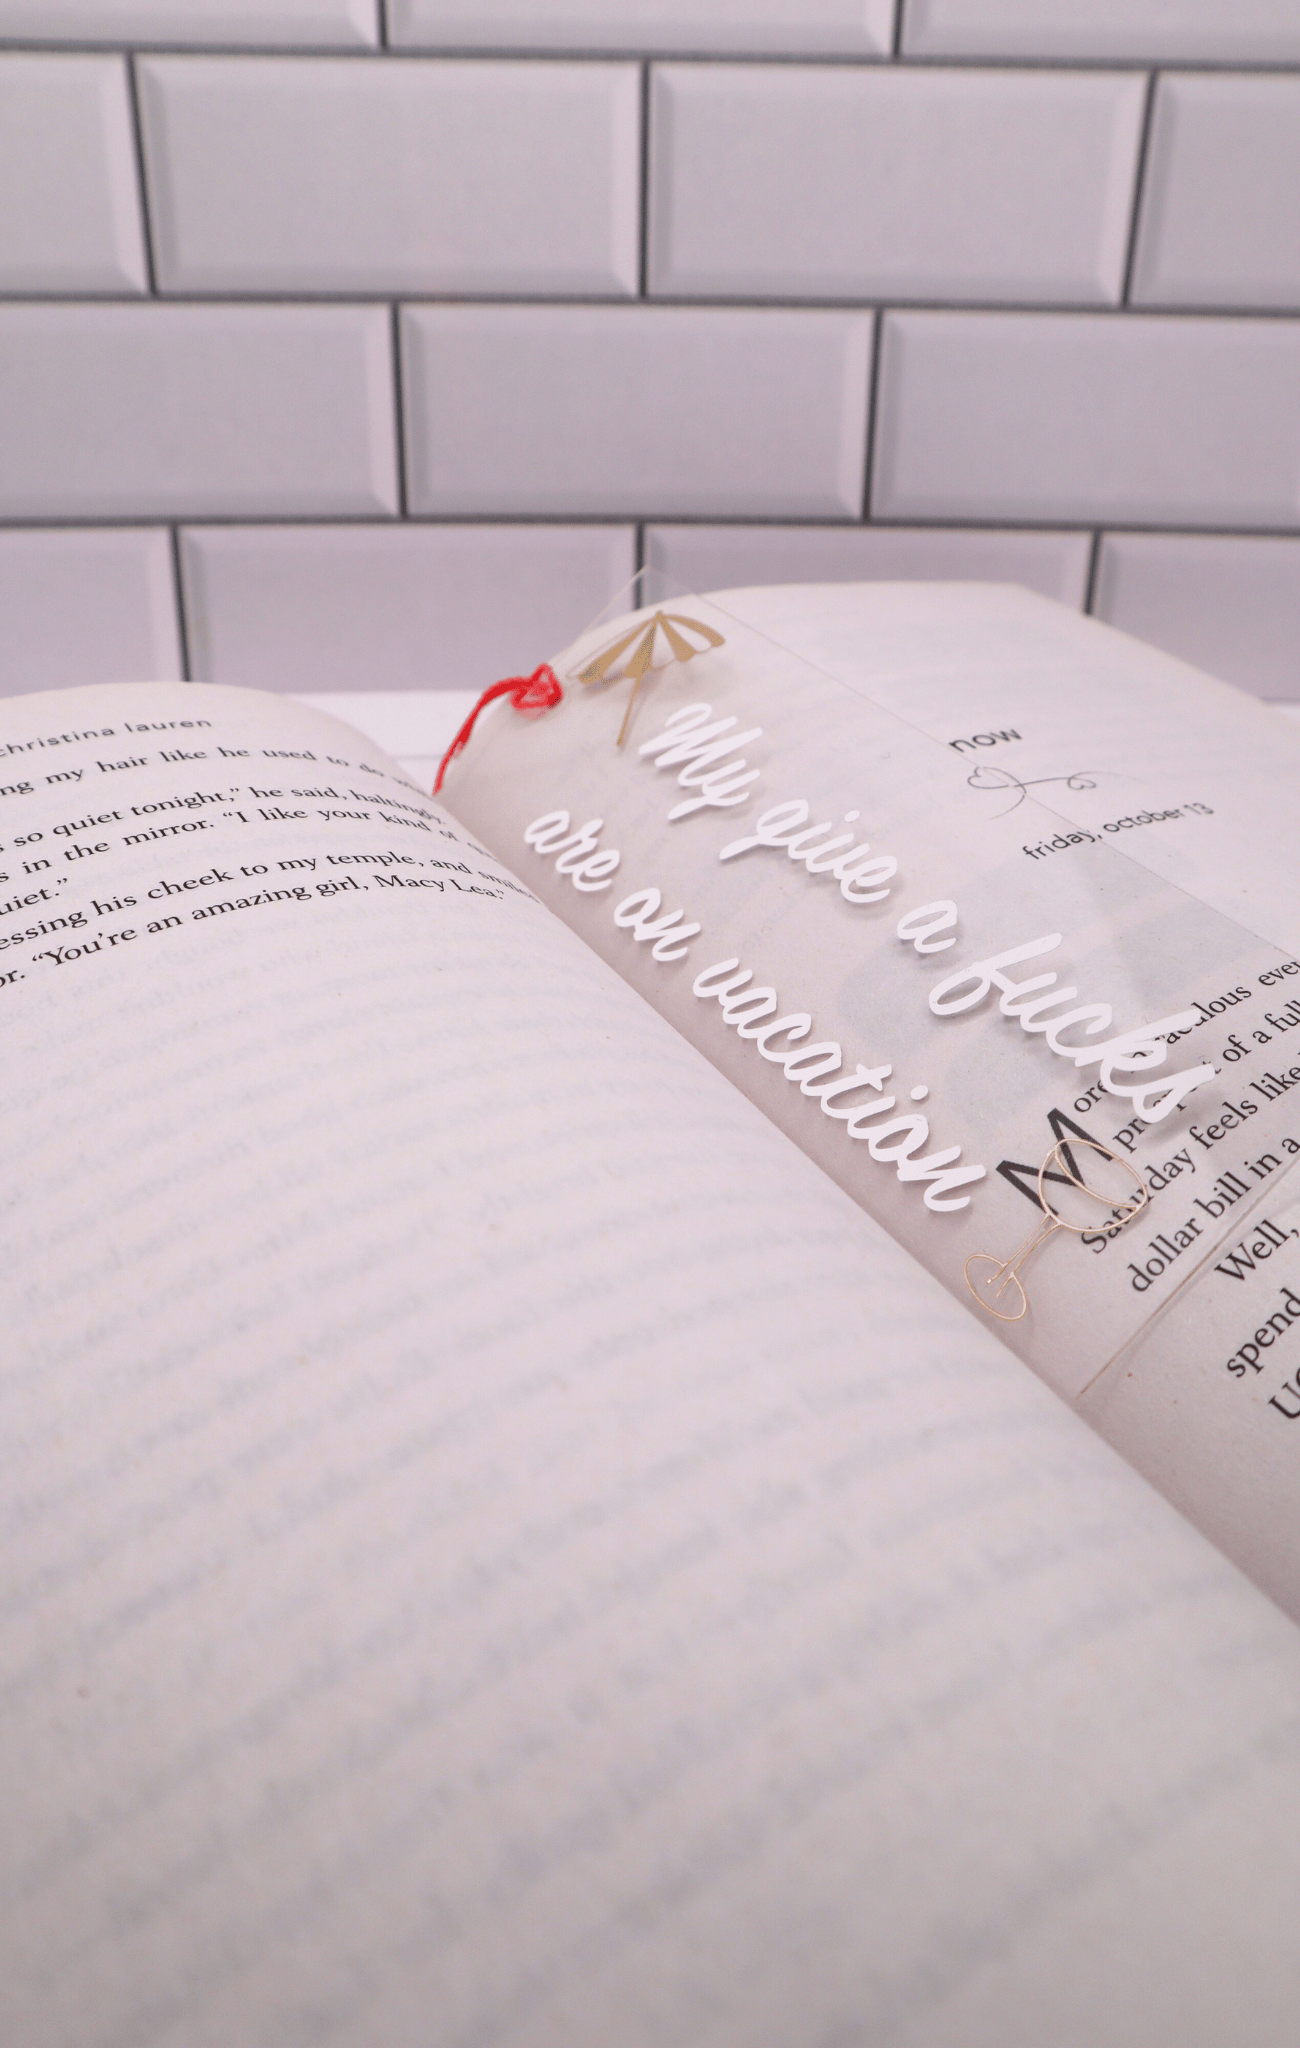 christina lauren
ng my hair like he used to do
so quiet tonight,” he said, haltingly.
s in the mirror. “I like your kind of
uiet.”
essing his cheek to my temple, and smiled
or. “You're an amazing girl, Macy Lea.”
My give a fucks
are on vacation
now
friday, october 13
More miraculous ever
prospect of a full
Saturday feels like
dollar bill in a
Well,
spend
UC